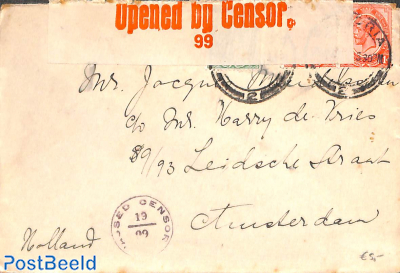 Opened by Censor.
99
Mr. Jacques
c/o Mr. Harry de Vries
89/93 Leidsche Straat
Amsterdam
Holland
PASSED CENSOR
19
99
€5,-
PostBeeld